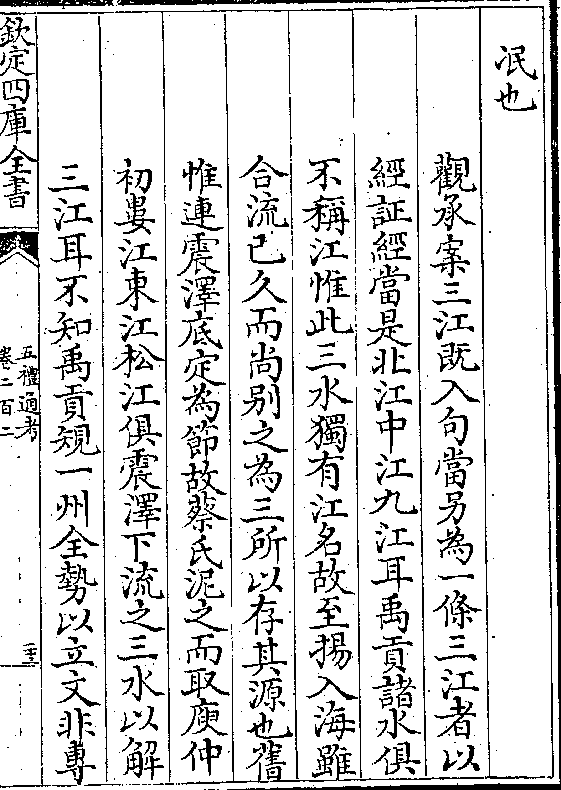 泯也
觀承案三江既入句當另為一條三江者以
經証經當是北江中江九江耳禹貢諸水俱
不稱江惟此三水獨有江名故至揚入海雖
合流已久而尚别之為三所以存其源也舊
惟連震澤底定為節故蔡氏泥之而取庾仲
初婁江東江松江俱震澤下流之三水以解
三江耳不知禹貢規一州全勢以立文非專
欽定四庫全書
五禮通考
卷二百二